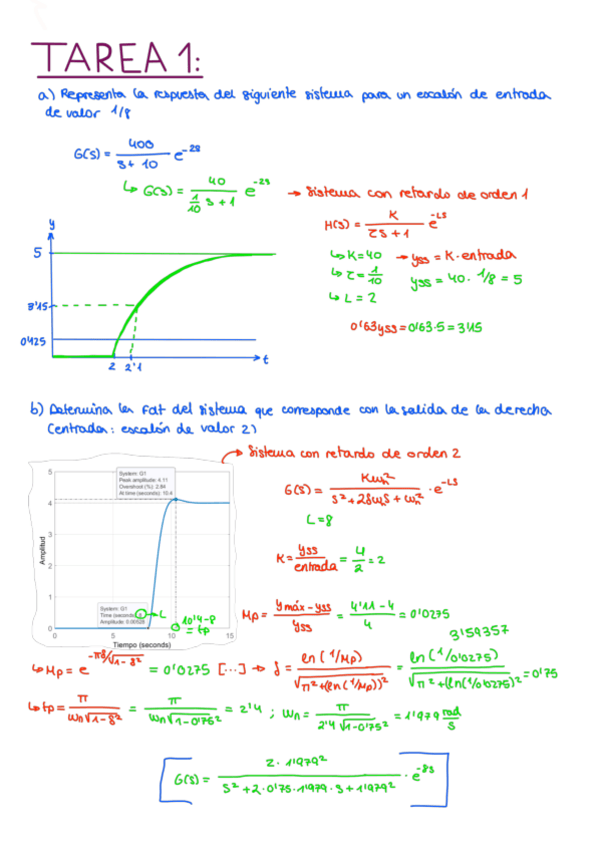 TAREA 1:
a) Representa la respuesta del siguiente sistema para un escalón de entrada
de valor 1/8
G(s) = 400 / (s + 10) e^-2s
↳ G(s) = 40 / (1/10 s + 1) e^-2s → Sistema con retardo de orden 1
H(s) = K / (τs + 1) e^-Ls
↳ K = 40 → yss = K · entrada
↳ τ = 1/10 yss = 40 · 1/8 = 5
↳ L = 2
0'63yss = 0'63·5 = 3'15
y
5
3'15
0'125
2 2'1
t
b) Determina la Fdt del sistema que corresponde con la salida de la derecha
(entrada: escalón de valor 2)
→ Sistema con retardo de orden 2
G(s) = Kωn² / (s² + 2δωns + ωn²) · e^-Ls
L = 8
K = yss / entrada = 4/2 = 2
System: G1
Peak amplitude: 4.11
Overshoot (%): 2.84
At time (seconds): 10.4
System: G1
Time (seconds):
Amplitude:
→ L
10'4-8
= tp
Amplitud
5
4
3
2
1
0
0 5 10 15
Tiempo (seconds)
Mp = ymáx - yss / yss = 4'11 - 4 / 4 = 0'0275
3'59357
↳ Mp = e^-πδ/√1-δ² = 0'0275 [...] → δ = ln(1/Mp) / √π²+(ln(1/Mp))² = ln(1/0'0275) / √π²+(ln(1/0'0275)² = 0'75
↳ tp = π / ωn√1-δ² = π / ωn√1-0'75² = 2'4 ; ωn = π / 2'4√1-0'75² = 1'979 rad/s
G(s) = 2 · 1'979² / (s² + 2·0'75·1'979·s + 1'979²) · e^-8s